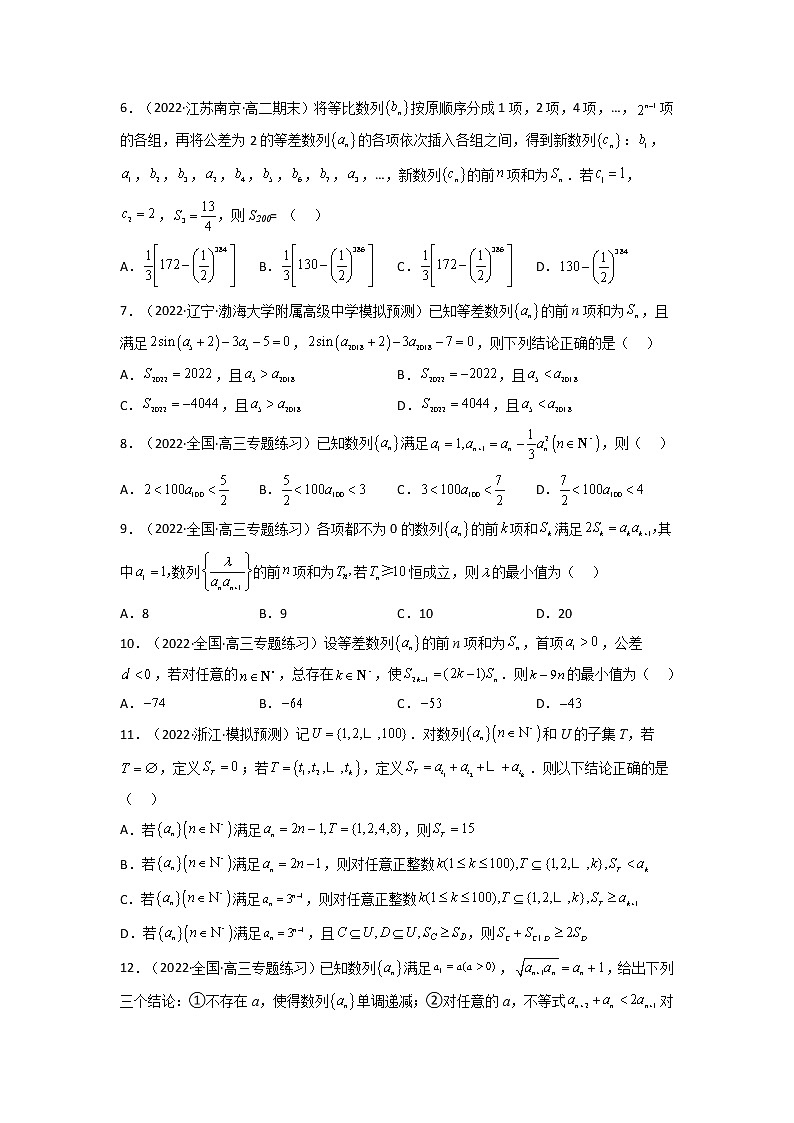 6.（2022·江苏南京·高二期末）将等比数列{bₙ}按原顺序分成 1 项，2 项，4 项，…，2ⁿ⁻¹ 项
的各组，再将公差为 2 的等差数列{aₙ}的各项依次插入各组之间，得到新数列{cₙ}：b₁，
a₁，b₂，b₃，a₂，b₄，b₅，b₆，b₇，a₃，…，新数列{cₙ}的前 n 项和为 Sₙ．若 c₁ = 1，
c₂ = 2，S₃ = 13/4，则 S₂₀₀=（ ）
A．1/3[172 − (1/2)^384] B．1/3[130 − (1/2)^386] C．1/3[172 − (1/2)^386] D．130 − (1/2)^384
7.（2022·辽宁·渤海大学附属高级中学模拟预测）已知等差数列{aₙ}的前 n 项和为 Sₙ，且
满足 2sin(a₅ + 2) − 3a₅ − 5 = 0，2sin(a₂₀₁₈ + 2) − 3a₂₀₁₈ − 7 = 0，则下列结论正确的是（ ）
A．S₂₀₂₂ = 2022，且 a₅ > a₂₀₁₈ B．S₂₀₂₂ = −2022，且 a₅ < a₂₀₁₈
C．S₂₀₂₂ = −4044，且 a₅ > a₂₀₁₈ D．S₂₀₂₂ = 4044，且 a₅ < a₂₀₁₈
8.（2022·全国·高三专题练习）已知数列{aₙ}满足 a₁ = 1, aₙ₊₁ = aₙ − 1/3 aₙ² (n ∈ N*)，则（ ）
A．2 < 100a₁₀₀ < 5/2 B．5/2 < 100a₁₀₀ < 3 C．3 < 100a₁₀₀ < 7/2 D．7/2 < 100a₁₀₀ < 4
9.（2022·全国·高三专题练习）各项都不为 0 的数列{aₙ}的前 k 项和 Sₖ 满足 2Sₖ = aₖaₖ₊₁,其
中 a₁ = 1,数列{λ/(aₙaₙ₊₁)}的前 n 项和为 Tₙ,若 Tₙ≥10 恒成立，则 λ 的最小值为（ ）
A．8 B．9 C．10 D．20
10.（2022·全国·高三专题练习）设等差数列{aₙ}的前 n 项和为 Sₙ，首项 a₁ > 0，公差
d < 0，若对任意的 n ∈ N*，总存在 k ∈ N*，使 S₂ₖ₋₁ = (2k−1)Sₙ．则 k − 9n 的最小值为（ ）
A．−74 B．−64 C．−53 D．−43
11.（2022·浙江·模拟预测）记 U = {1,2,∟ ,100}．对数列{aₙ}(n ∈ N*)和 U 的子集 T，若
T = ∅，定义 S_T = 0；若 T = {t₁,t₂,∟ ,tₖ}，定义 S_T = a_{t₁} + a_{t₂} + ∟ + a_{tₖ}．则以下结论正确的是
（ ）
A．若{aₙ}(n ∈ N*)满足 aₙ = 2n − 1, T = {1,2,4,8}，则 S_T = 15
B．若{aₙ}(n ∈ N*)满足 aₙ = 2n − 1，则对任意正整数 k(1 ≤ k ≤ 100), T ⊆ {1,2,∟ ,k}, S_T < aₖ
C．若{aₙ}(n ∈ N*)满足 aₙ = 3ⁿ⁻¹，则对任意正整数 k(1 ≤ k ≤ 100), T ⊆ {1,2,∟ ,k}, S_T ≥ aₖ₊₁
D．若{aₙ}(n ∈ N*)满足 aₙ = 3ⁿ⁻¹，且 C ⊆ U, D ⊆ U, S_C ≥ S_D，则 S_C + S_{CI D} ≥ 2S_D
12.（2022·全国·高三专题练习）已知数列{aₙ}满足 a₁ = a(a > 0)，√(aₙ₊₁aₙ) = aₙ + 1，给出下列
三个结论：①不存在 a，使得数列{aₙ}单调递减；②对任意的 a，不等式 aₙ₊₂ + aₙ < 2aₙ₊₁ 对